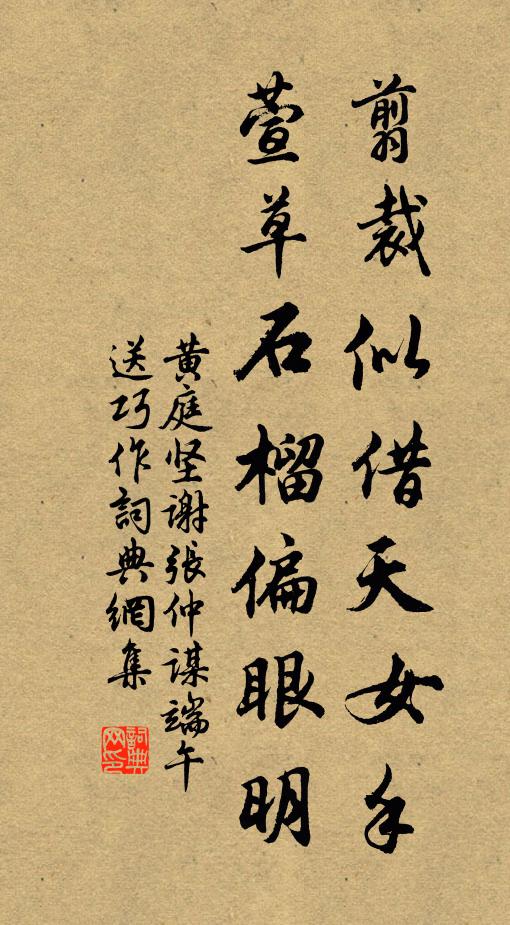 翦裁似借天女手
萱草石榴偏眼明
黄庭坚謝張仲謀端午
送巧作詞典網集
詞典網印